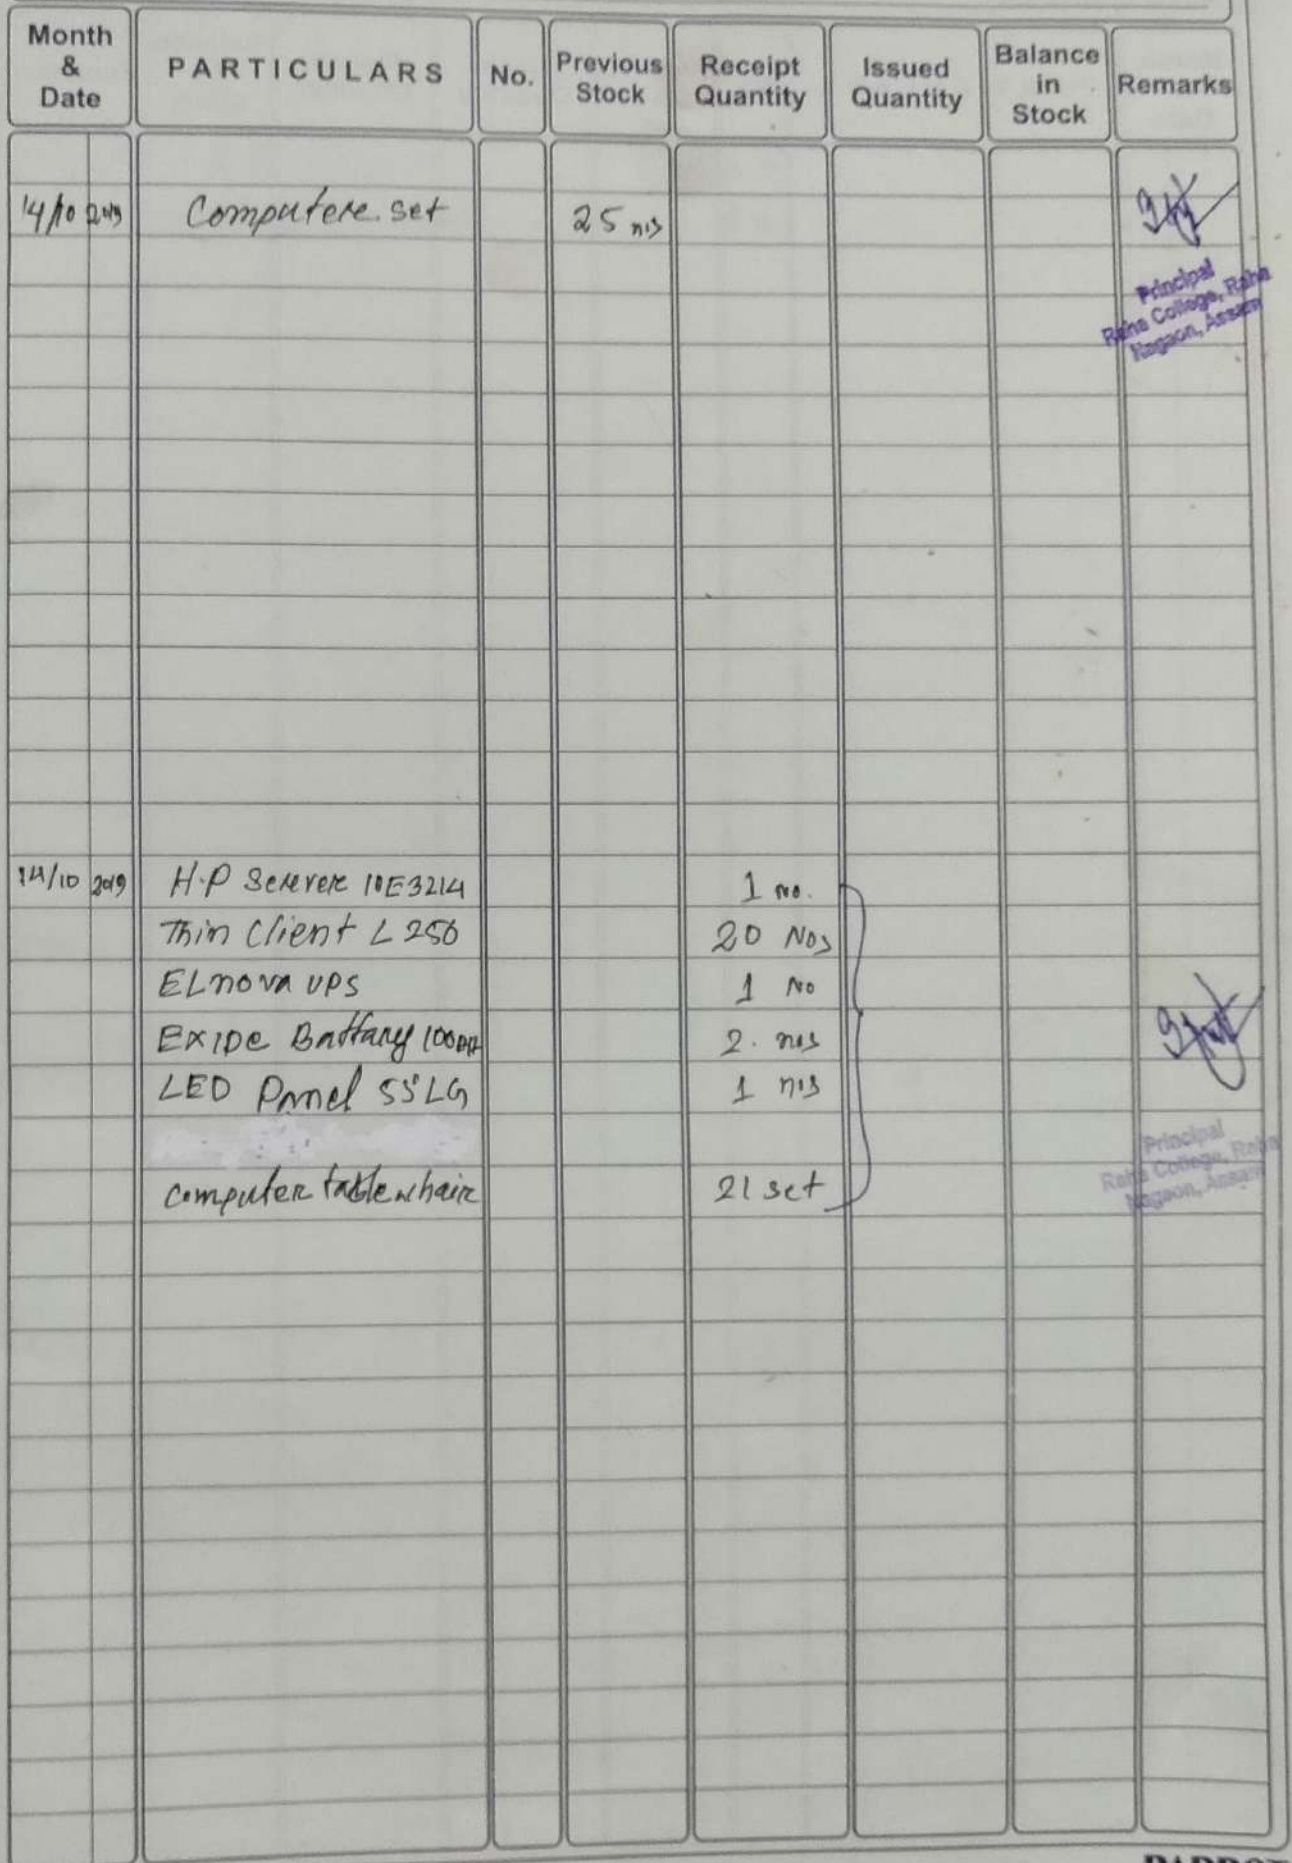 Month & Date PARTICULARS No. Previous Stock Receipt Quantity Issued Quantity Balance in Stock Remarks
14/10 2019 Computere set 25 nos
Principal
Raha College, Raha
Nagaon, Assam
14/10 2019 H.P Serevere 10E3214 1 no.
Thin Client L 250 20 Nos
ELnova UPS 1 No
EXIDE Battary 100AH 2. nos
LED Panel 55" LG 1 nos
Principal
Raha College, Raha
Nagaon, Assam
Computer table chair 21 set